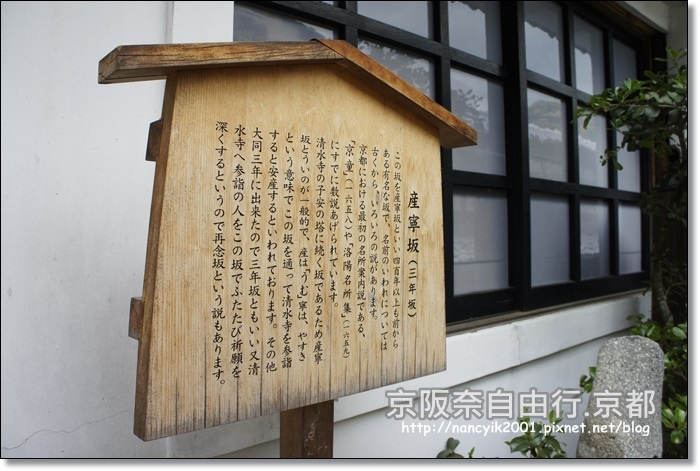 産寧坂（三年坂）
この坂を産寧坂といい四百年以上も前から
ある有名な坂で、名前のいわれについては
古くからいろいろの説があります。
京都における最初の名所案内説である、
「京童」（一六五八）や「洛陽名所集」（一六五九）
にすでに数説あげられています。
清水寺の子安の塔に続く坂であるため産寧
坂というのが一般的で、産は「うむ」寧は、やすき
という意味でこの坂を通って清水寺を参詣
すると安産するといわれております。その他
大同三年に出来たので三年坂ともいい又清
水寺へ参詣の人をこの坂でふたたび祈願を
深くするというので再念坂という説もあります。
京阪奈自由行.京都
http://nancyik2001.pixnet.net/blog